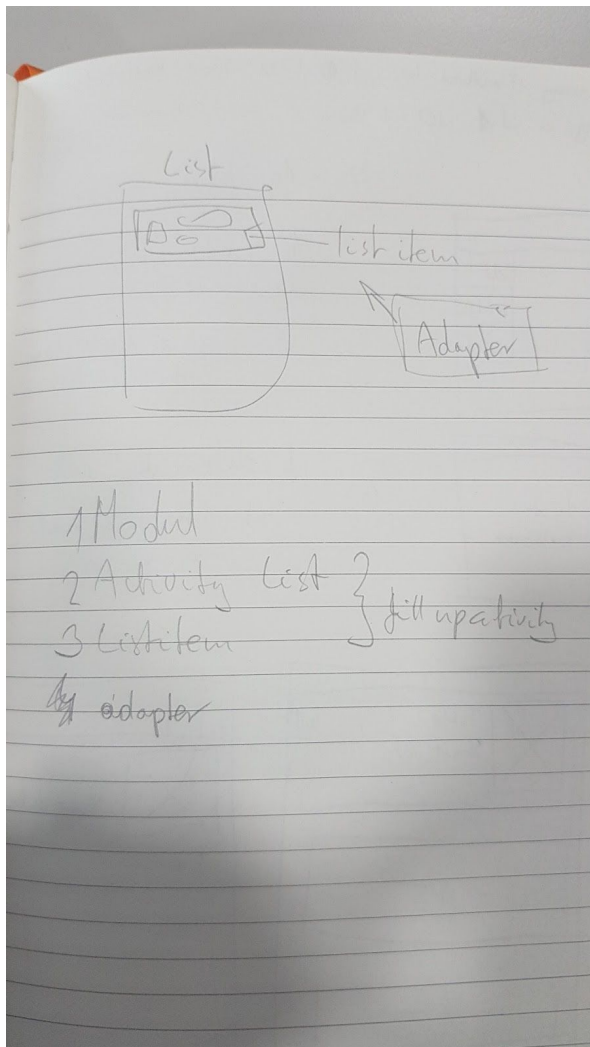 List
list item
Adapter
1 Modul
2 Activity List
3 Listitem
fill up ativity
4 adapter